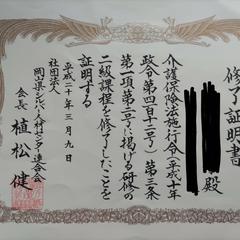 修了証明書
殿
介護保険法施行令(平成十年
政令第四百十二号)第三条
第一項第二号に掲げる研修の
二級課程を修了したことを
証明する
平成二十年三月九日
社団法人
岡山県シルバー人材センター連合会
会長 植松健